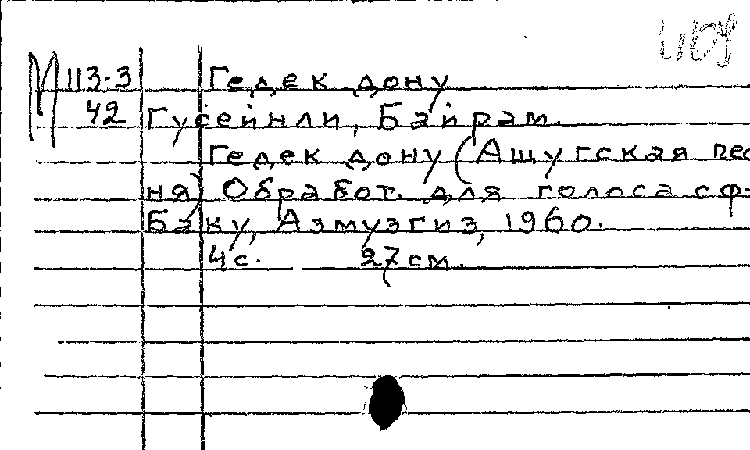 М 113-3 Гедек дону
42 Гусейнли, Байрам.
Гедек дону (Ашугская пес
ня) Обработ. для голоса с ф-
Баку, Азмузгиз, 1960.
4с. 27см.